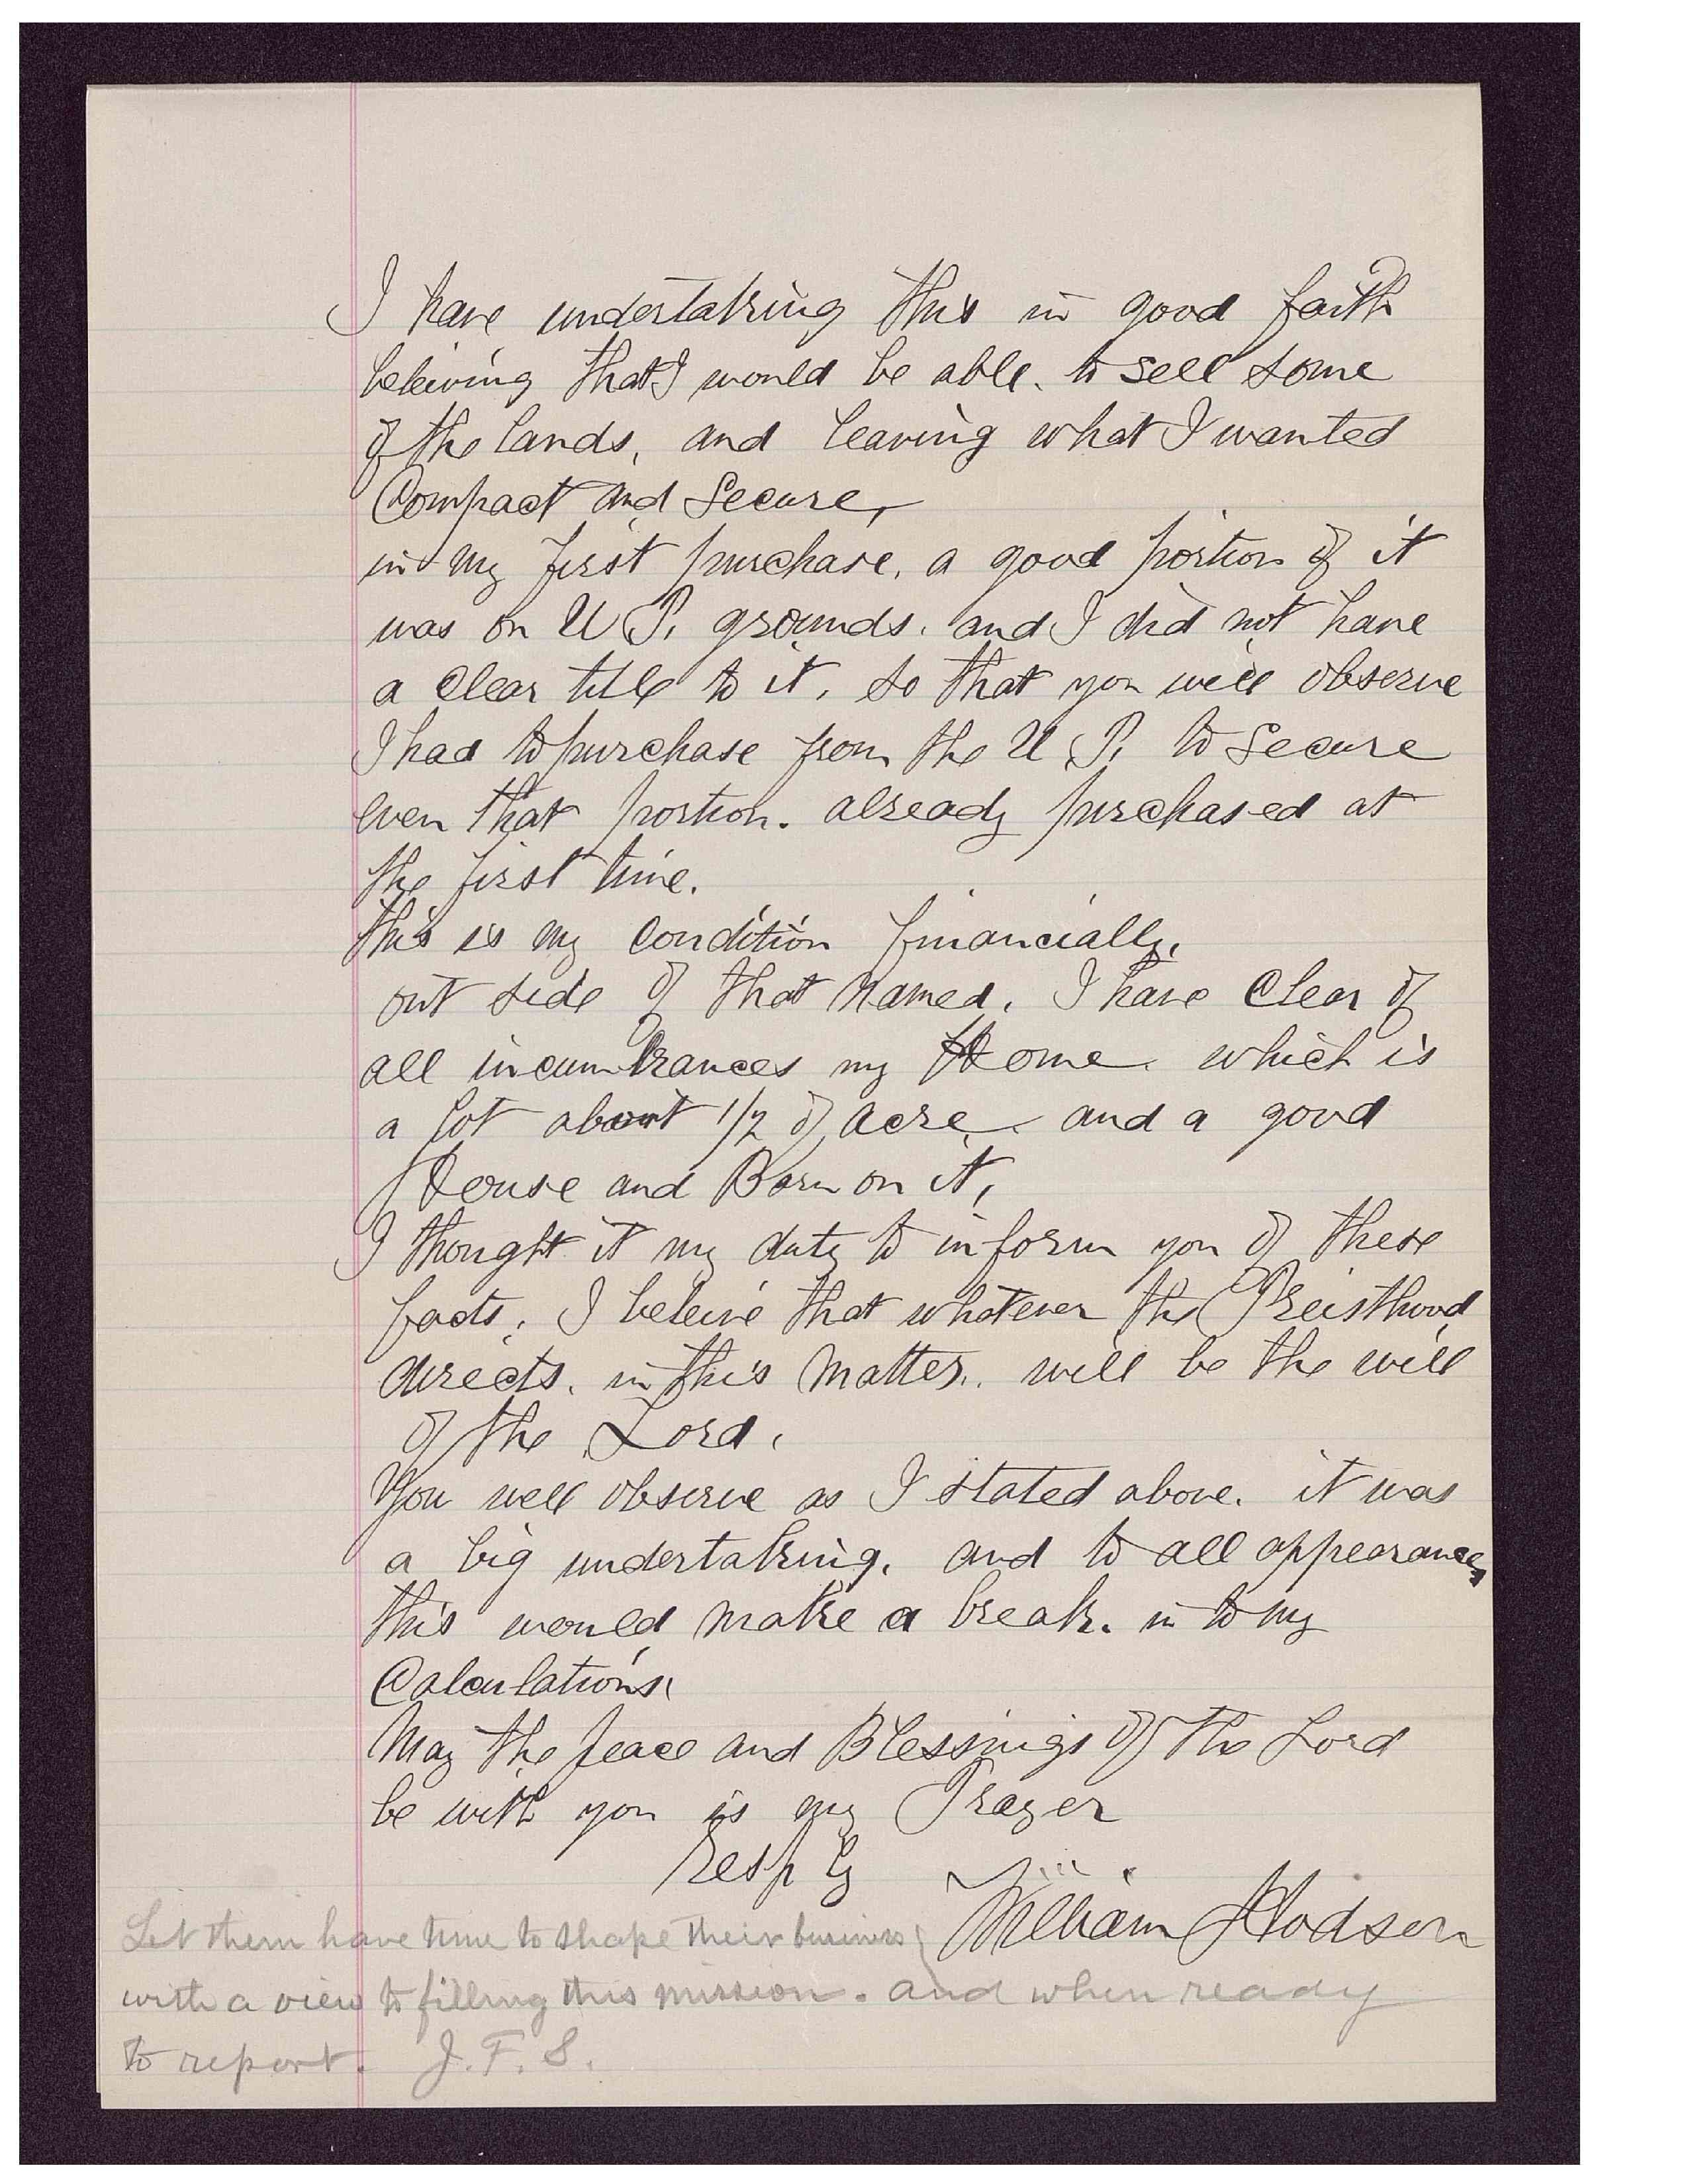 I have undertaking this in good faith
beleiving that I would be able. to sell some
of the lands, and leaving what I wanted
Compact and Secure,
in my first purchase, a good portion of it
was on U P. grounds. and I did not have
a Clear title to it, so that you will observe
I had to purchase from the U P. to Secure
even that portion. already purchased at
the first time.
this is my Condition financially,
out side of that Named, I have Clear of
all incumbrances my Home. which is
a lot about 1/2 of acre. and a good
House and Barn on it,
I thought it my duty to inform you of these
facts, I beleive that whatever the Preisthood
directs, in this Matter. will be the will
of the Lord,
You will observe as I stated above. it was
a big undertaking, and to all appearances
this would make a break. in to my
Calculations,
May the peace and Blessings of the Lord
be with you is my Prayer
Resp ly
William Hodson
Let them have time to shape their business
with a view to filling this mission. and when ready
to report. J. F. S.